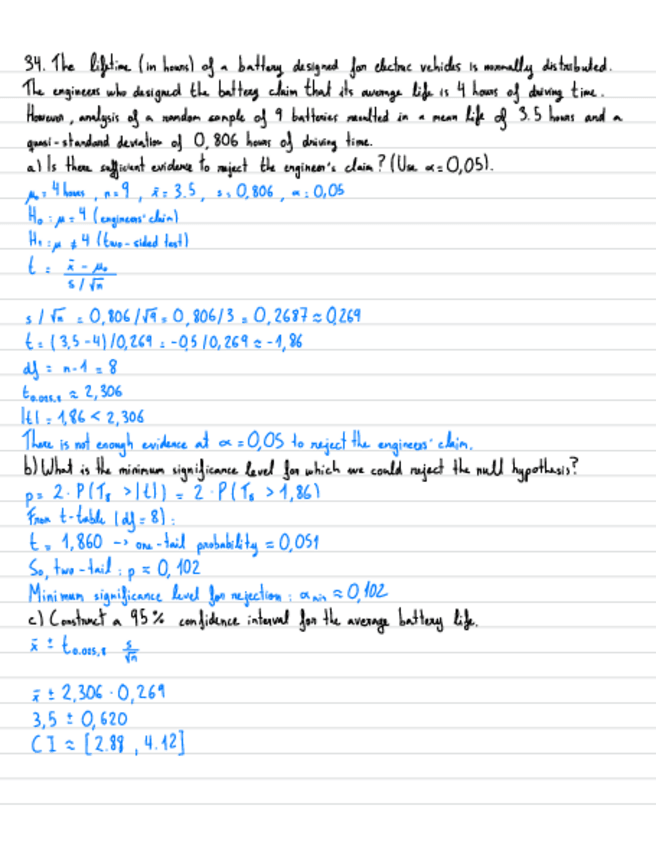 34. The lifetime (in hours) of a battery designed for electric vehicles is normally distributed.
The engineers who designed the battery claim that its average life is 4 hours of driving time.
However, analysis of a random sample of 9 batteries resulted in a mean life of 3.5 hours and a
quasi-standard deviation of 0,806 hours of driving time.
a) Is there sufficient evidence to reject the engineer's claim? (Use α=0,05).
μ₀ = 4 hours, n=9, x̄=3.5, s=0,806, α=0,05
H₀: μ=4 (engineers' claim)
H₁: μ ≠ 4 (two-sided test)
t = (x̄ - μ₀) / (s/√n)
s/√n = 0,806/√9 = 0,806/3 = 0,2687 ≈ 0,269
t = (3,5-4)/0,269 = -0,5/0,269 ≈ -1,86
df = n-1 = 8
t₀.₀₂₅,₈ ≈ 2,306
|t| = 1,86 < 2,306
There is not enough evidence at α=0,05 to reject the engineers' claim.
b) What is the minimum significance level for which we could reject the null hypothesis?
p = 2·P(T₈ >|t|) = 2·P(T₈ > 1,86)
From t-table (df=8):
t = 1,860 -> one-tail probability = 0,051
So, two-tail: p ≈ 0,102
Minimum significance level for rejection: α min ≈ 0,102
c) Construct a 95% confidence interval for the average battery life.
x̄ ± t₀.₀₂₅,₈ s/√n
x̄ ± 2,306 · 0,269
3,5 ± 0,620
CI ≈ [2.88, 4.12]